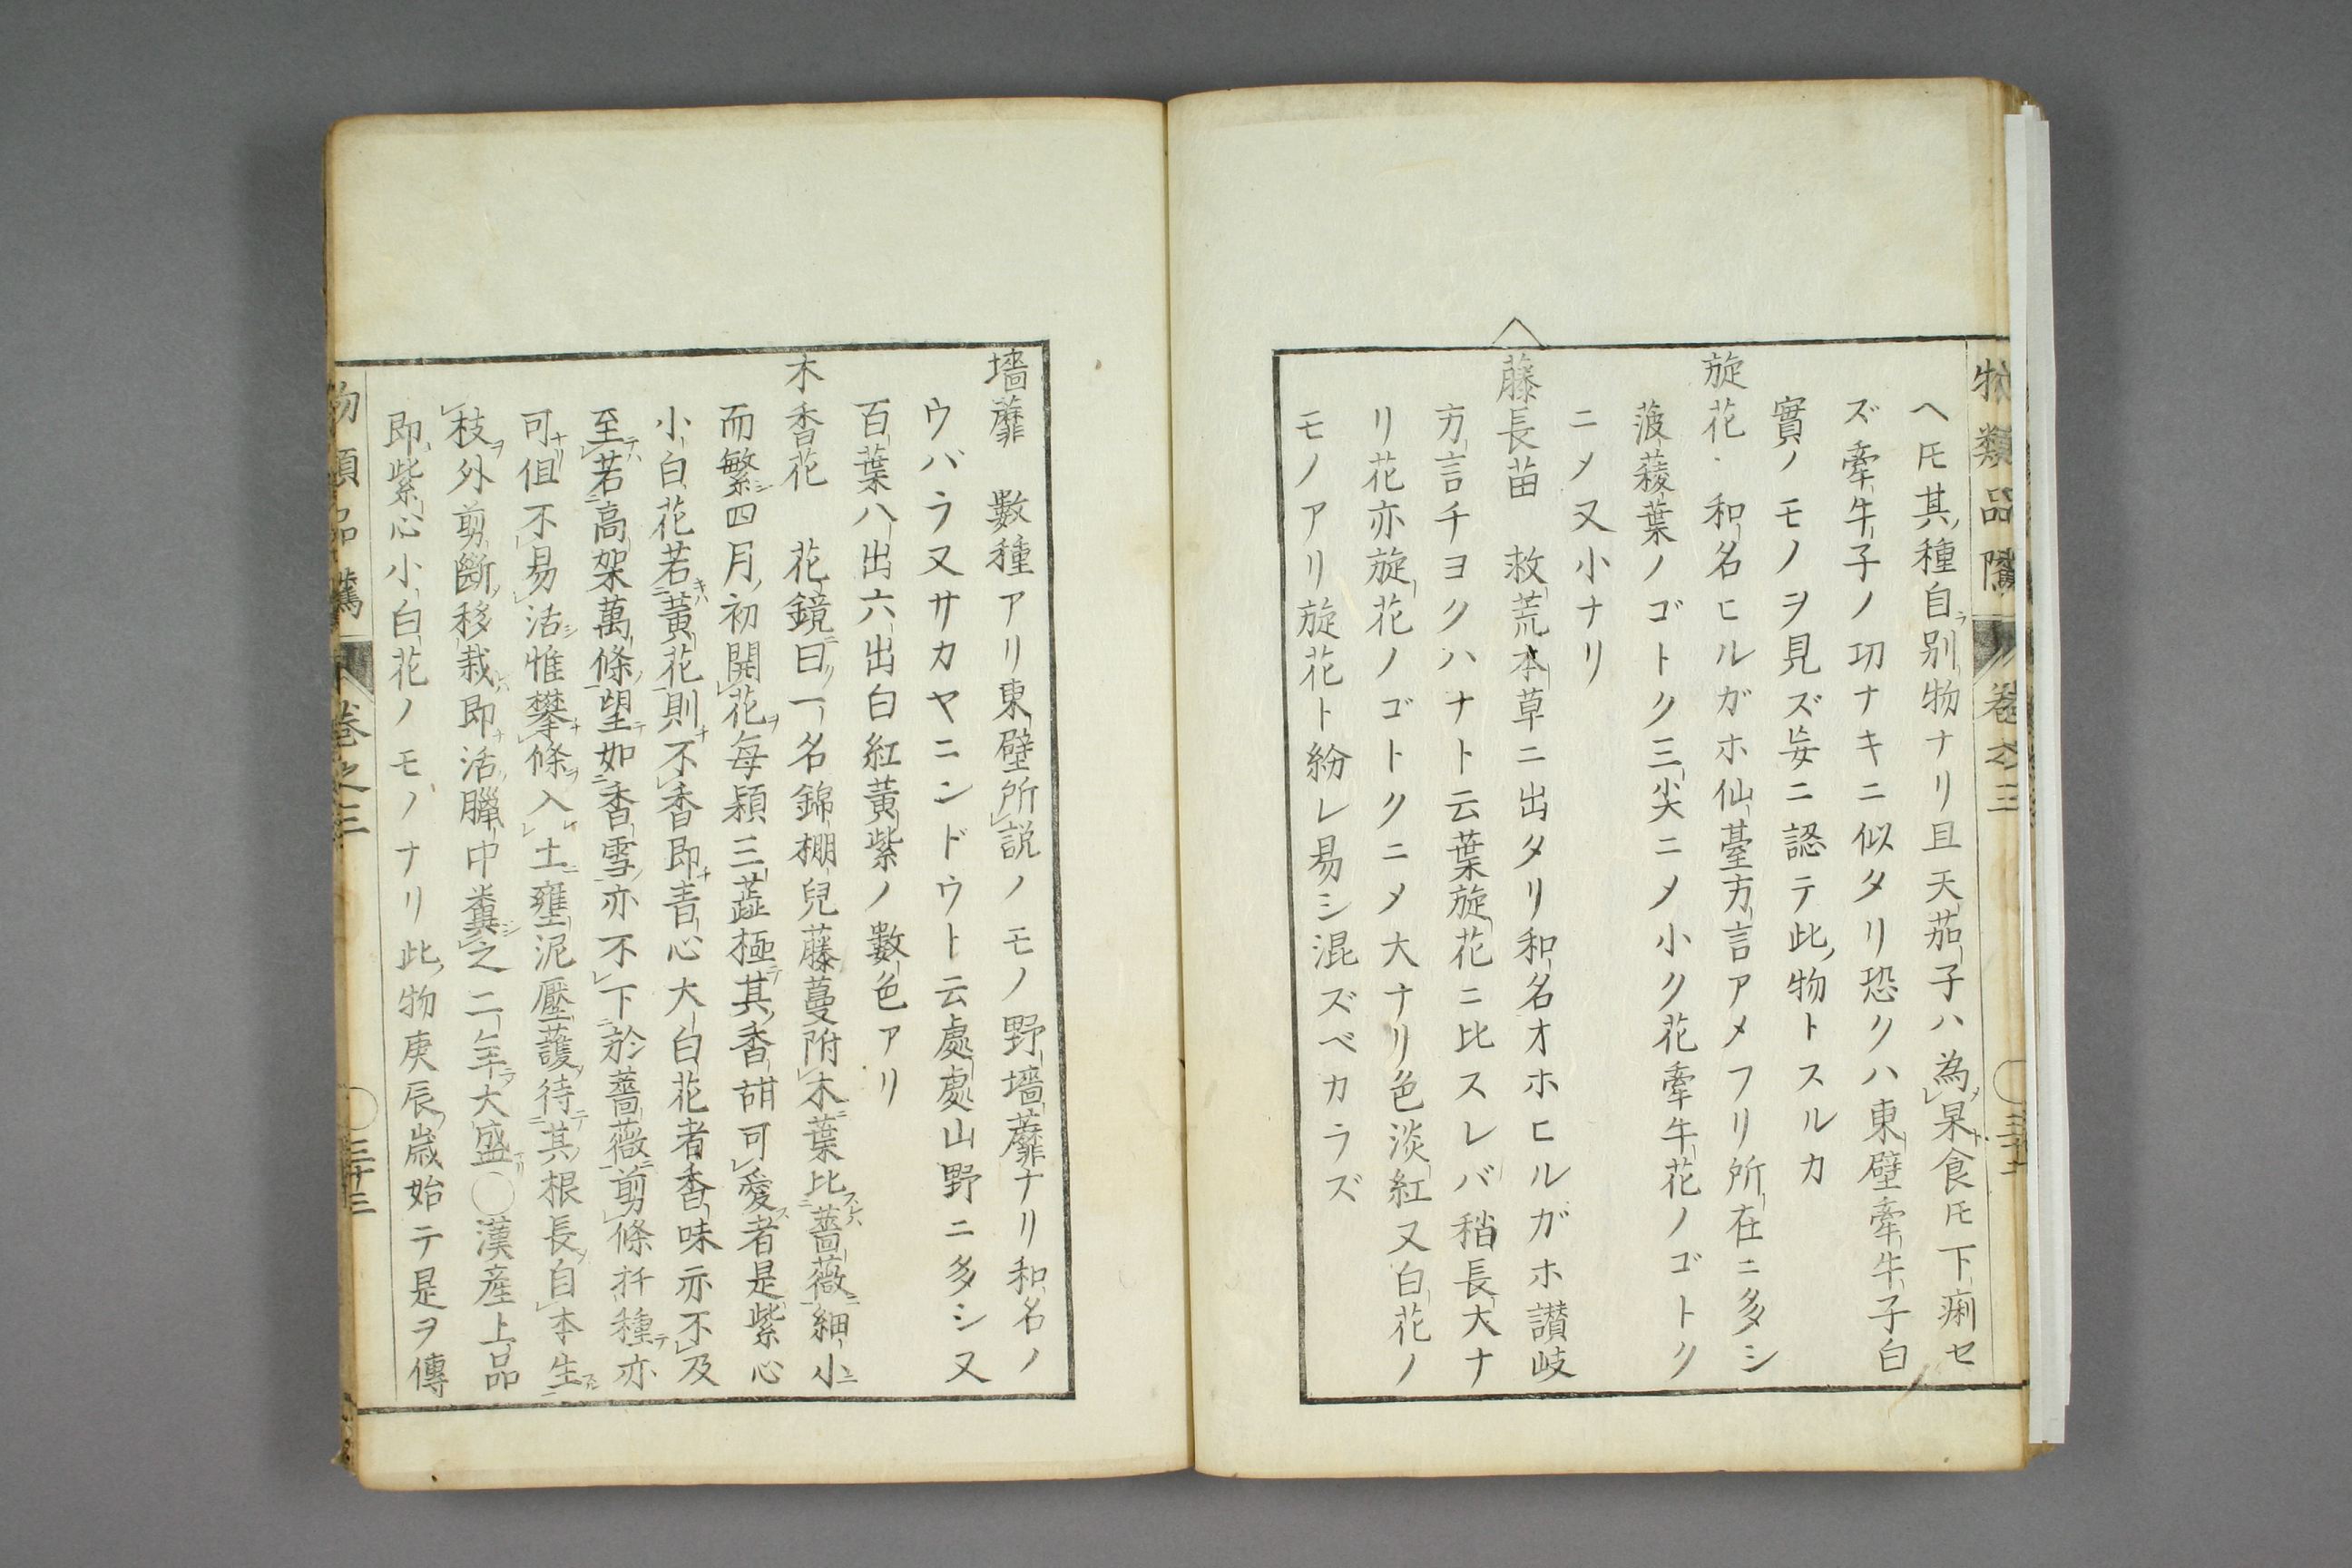 物類品隲 卷之三 三十二
ヘ𪜈其種自別物ナリ且天茄子ハ為果食𪜈下痢セ
ズ牽牛子ノ功ナキニ似タリ恐クハ東壁牽牛子白
實ノモノヲ見ズ妄ニ認テ此物トスルカ
旋花 和名ヒルガホ仙臺方言アメフリ所在ニ多シ
菠薐葉ノゴトク三尖ニメ小ク花牽牛花ノゴトク
ニメ又小ナリ
藤長苗 救荒本草ニ出タリ和名オホヒルガホ讃岐
方言チヨクハナト云葉旋花ニ比スレバ稍長大ナ
リ花亦旋花ノゴトクニメ大ナリ色淡紅又白花ノ
モノアリ旋花ト紛レ易シ混ズベカラズ
墻蘼 數種アリ東壁所説ノモノ野墻蘼ナリ和名ノ
ウバラ又サカヤニンドウト云處處山野ニ多シ又
百葉八出六出白紅黃紫ノ數色アリ
木香花 花鏡曰一名錦棚兒藤蔓附木葉比薔薇細小
而繁四月初開花每顆三蕋極其香甜可愛者是紫心
小白花若黃花則不香即青心大白花者香味亦不及
至若高架萬條望如香雪亦不下於薔薇剪條扦種亦
可但不易活惟攀條入土壅泥壓護待其根長自本生
枝外剪斷移栽即活臘中糞之二年大盛○漢産上品
即紫心小白花ノモノナリ此物庚辰歲始テ是ヲ傳
物類品隲 卷之三 三十三